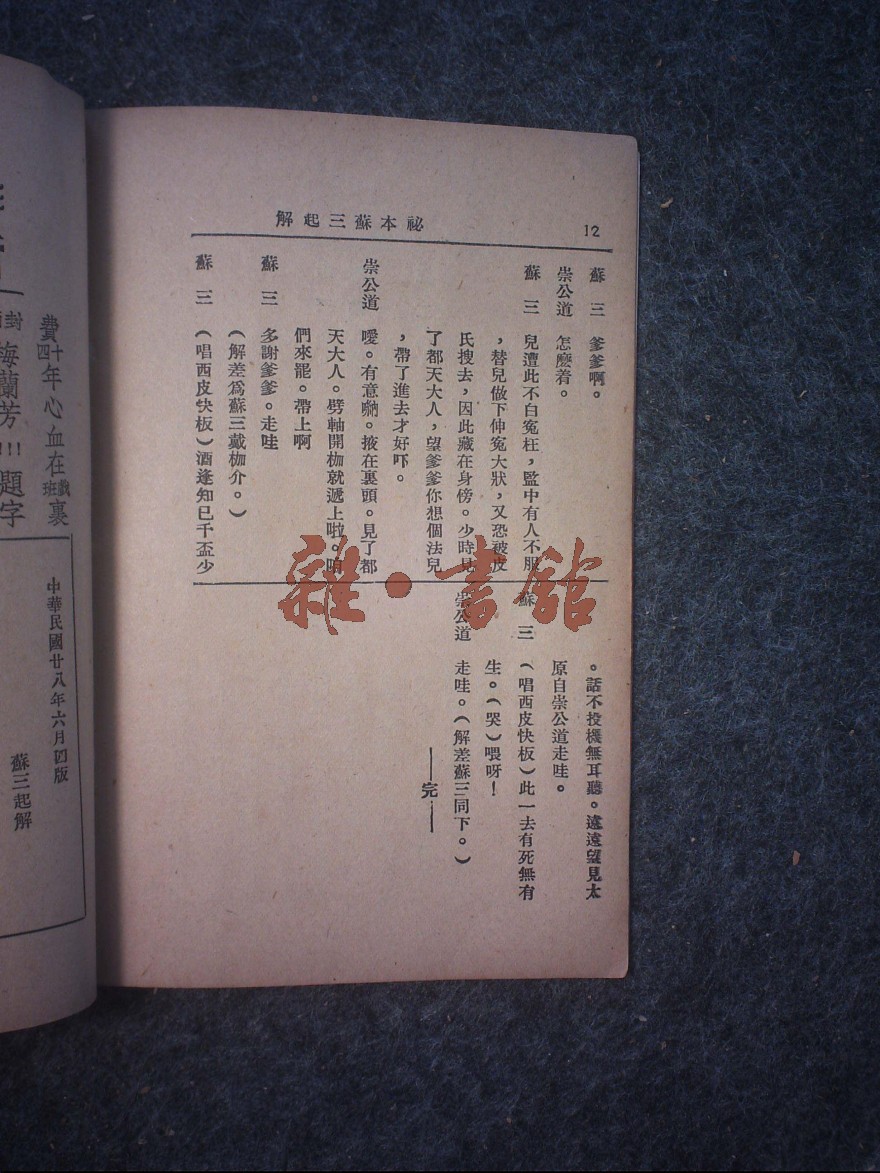 祕本蘇三起解
12
蘇　三　爹爹啊。
崇公道　怎麽着。
蘇　三　兒遭此不白寃枉，監中有人不服
，替兒做下伸寃大狀，又恐被皮
氏搜去，因此藏在身傍。少時見
了都天大人，望爹爹你想個法兒
，帶了進去才好吓。
崇公道　噯。有意喲。掖在裏頭。見了都
天大人。劈軸開枷就遞上啦。咱
們來罷。帶上啊
蘇　三　多謝爹爹。走哇
（解差爲蘇三戴枷介。）
蘇　三　（唱西皮快板）酒逢知已千盃少
。話不投機無耳聽。遠遠望見太
原自崇公道走哇。
蘇　三　（唱西皮快板）此一去有死無有
生。（哭）喂呀！
崇公道　走哇。（解差蘇三同下。）
——完——
雜·書館
蘇三起解
中華民國廿八年六月四版
費四十年心血在戲班裏
梅蘭芳!!!題字